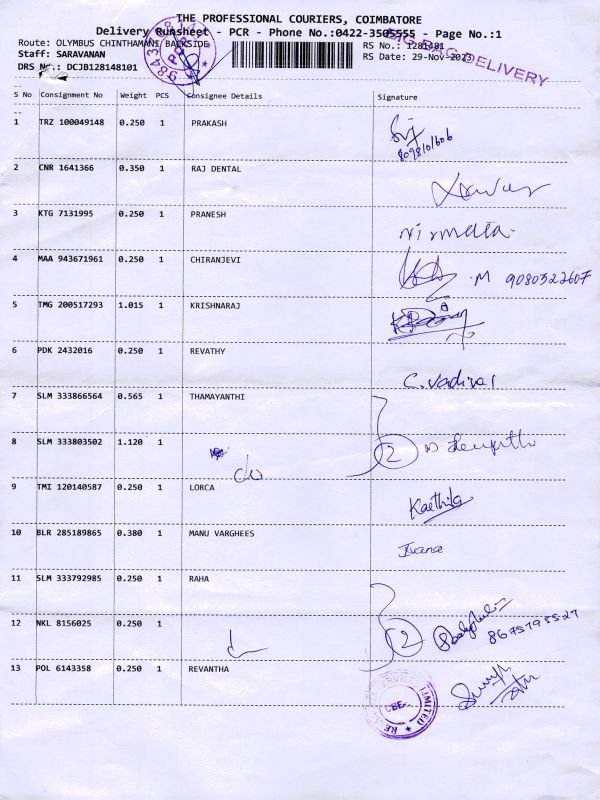 THE PROFESSIONAL COURIERS, COIMBATORE
Delivery Runsheet - PCR - Phone No.:0422-3505555 - Page No.:1
Route: OLYMBUS CHINTHAMANI BACKSIDE
RS No.: 1281481
Staff: SARAVANAN
RS Date: 29-Nov-2023
DRS No.: DCJB128148101
BAG DELIVERY
S No Consignment No Weight PCS Consignee Details Signature
1 TRZ 100049148 0.250 1 PRAKASH
8098101606
2 CNR 1641366 0.350 1 RAJ DENTAL
3 KTG 7131995 0.250 1 PRANESH
Nirmala
4 MAA 943671961 0.250 1 CHIRANJEVI
M 9080522607
5 TMG 200517293 1.015 1 KRISHNARAJ
6 PDK 2432016 0.250 1 REVATHY
C. Vadivel
7 SLM 333866564 0.565 1 THAMAYANTHI
8 SLM 333803502 1.120 1 do
2
9 TMI 120140587 0.250 1 LORCA
10 BLR 285189865 0.380 1 MANU VARGHEES
11 SLM 333792985 0.250 1 RAHA
12 NKL 8156025 0.250 1
2
13 POL 6143358 0.250 1 REVANTHA
LIMITED
CBE